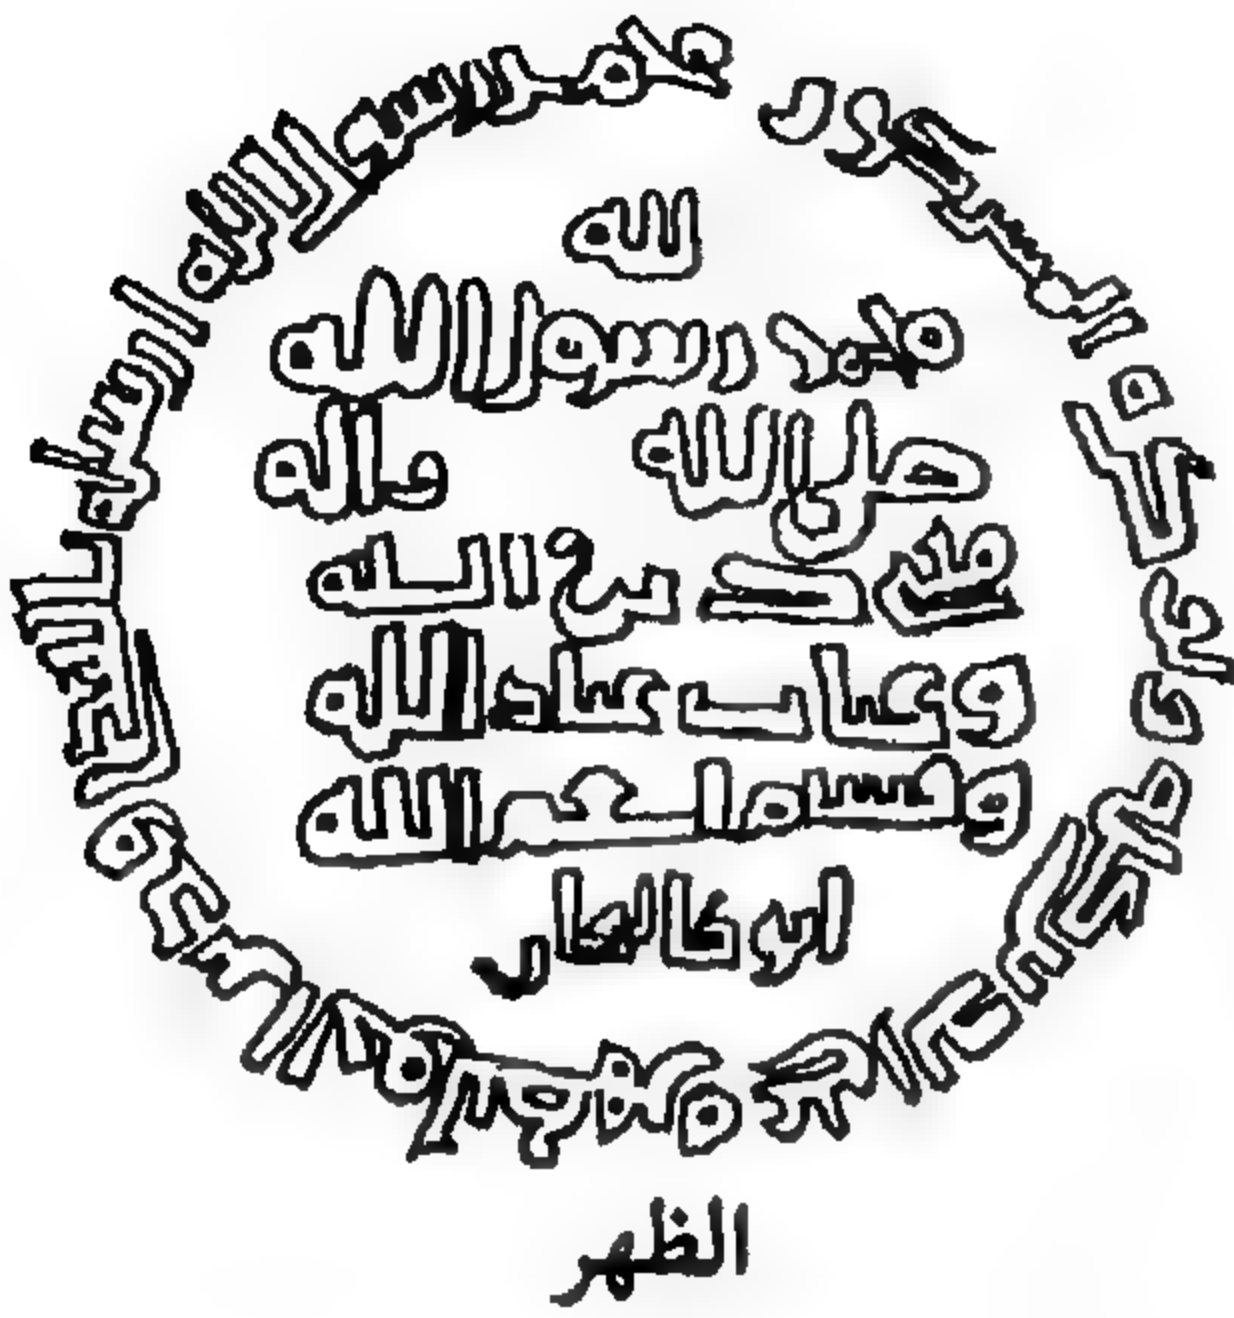 محمد رسول الله ارسله بالهدى ودين الحق ليظهره على الدين كله ولو كره المشركون
لله
محمد رسول الله
صلى الله واله
محيى دين الله
وغياث عباد الله
وقسيم الله
ابو كاليجار
الظهر